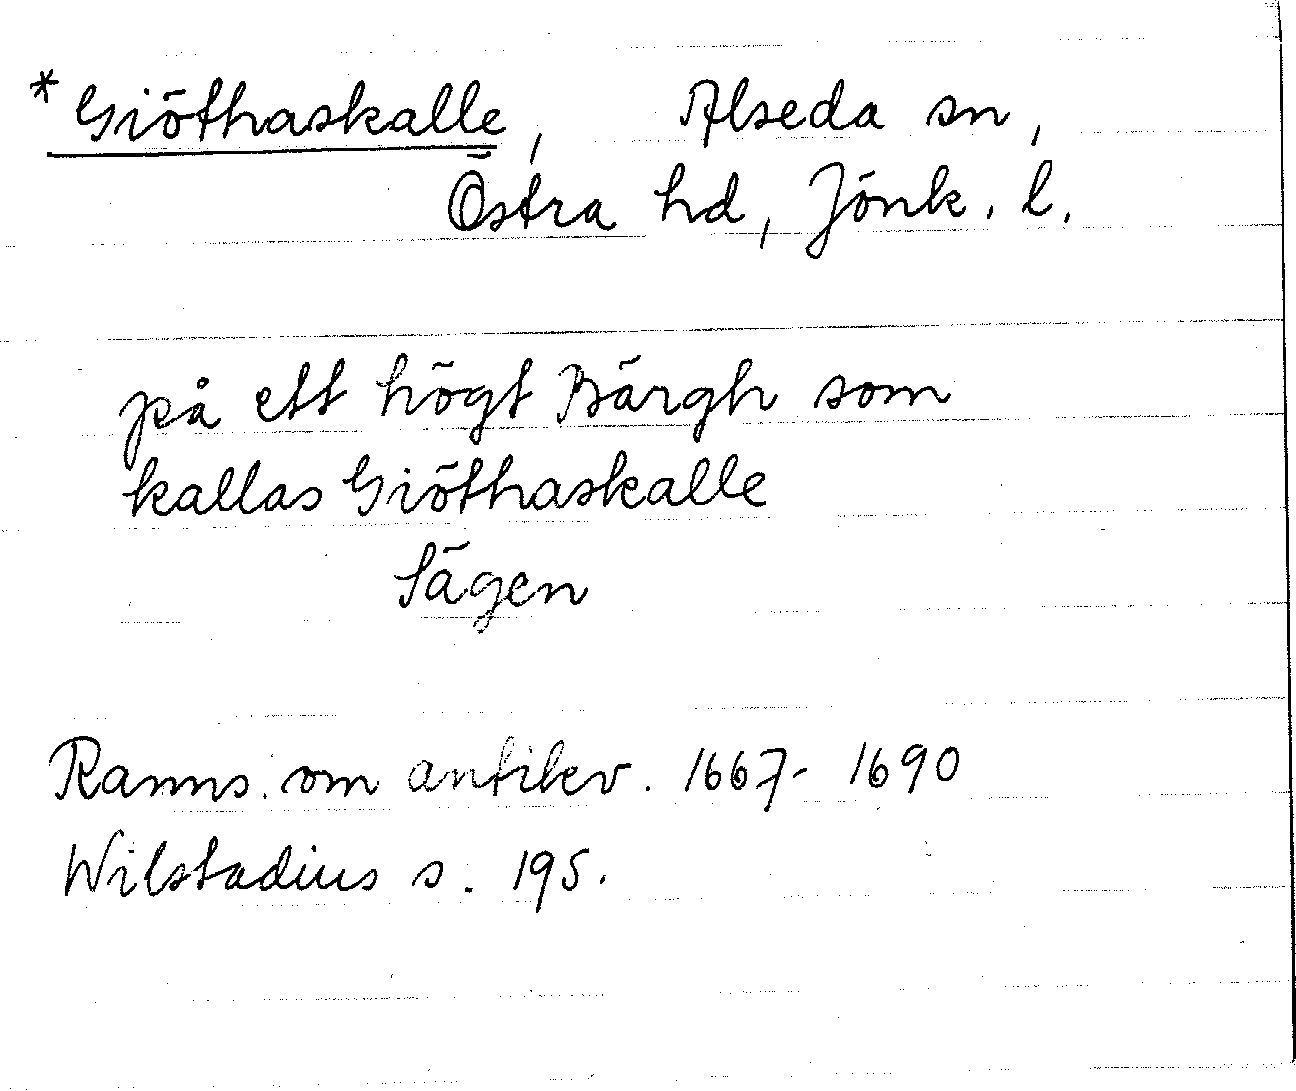 *Giöthaskalle, Alseda sn,
Östra hd, Jönk. l.
på ett högt Bärgh som
kallas Giöthaskalle
Sägen
Ranns. om antikv. 1667-1690
Wilstadius s. 195.